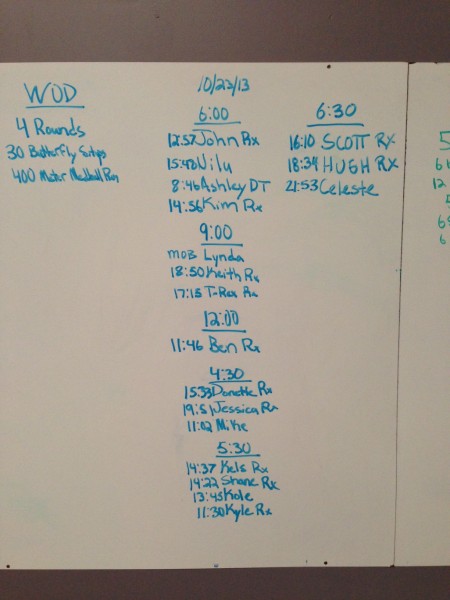 WOD
4 Rounds
30 Butterfly Situps
400 Meter Medball Run
10/23/13
6:00
12:57 John Rx
15:48
8:46 Ashley DT
14:56 Kim Rx
9:00
MOB Lynda
18:50 Keith Rx
17:15 T-Rex Rx
12:00
11:46 Ben Rx
4:30
15:33 Danette Rx
19:51 Jessica Rx
11:02 Mike
5:30
14:37 Kels Rx
14:22 Shane Rx
13:45 Kole
11:30 Kyle Rx
6:30
16:10 SCOTT RX
18:34 HUGH RX
21:53 Celeste
5
6
12